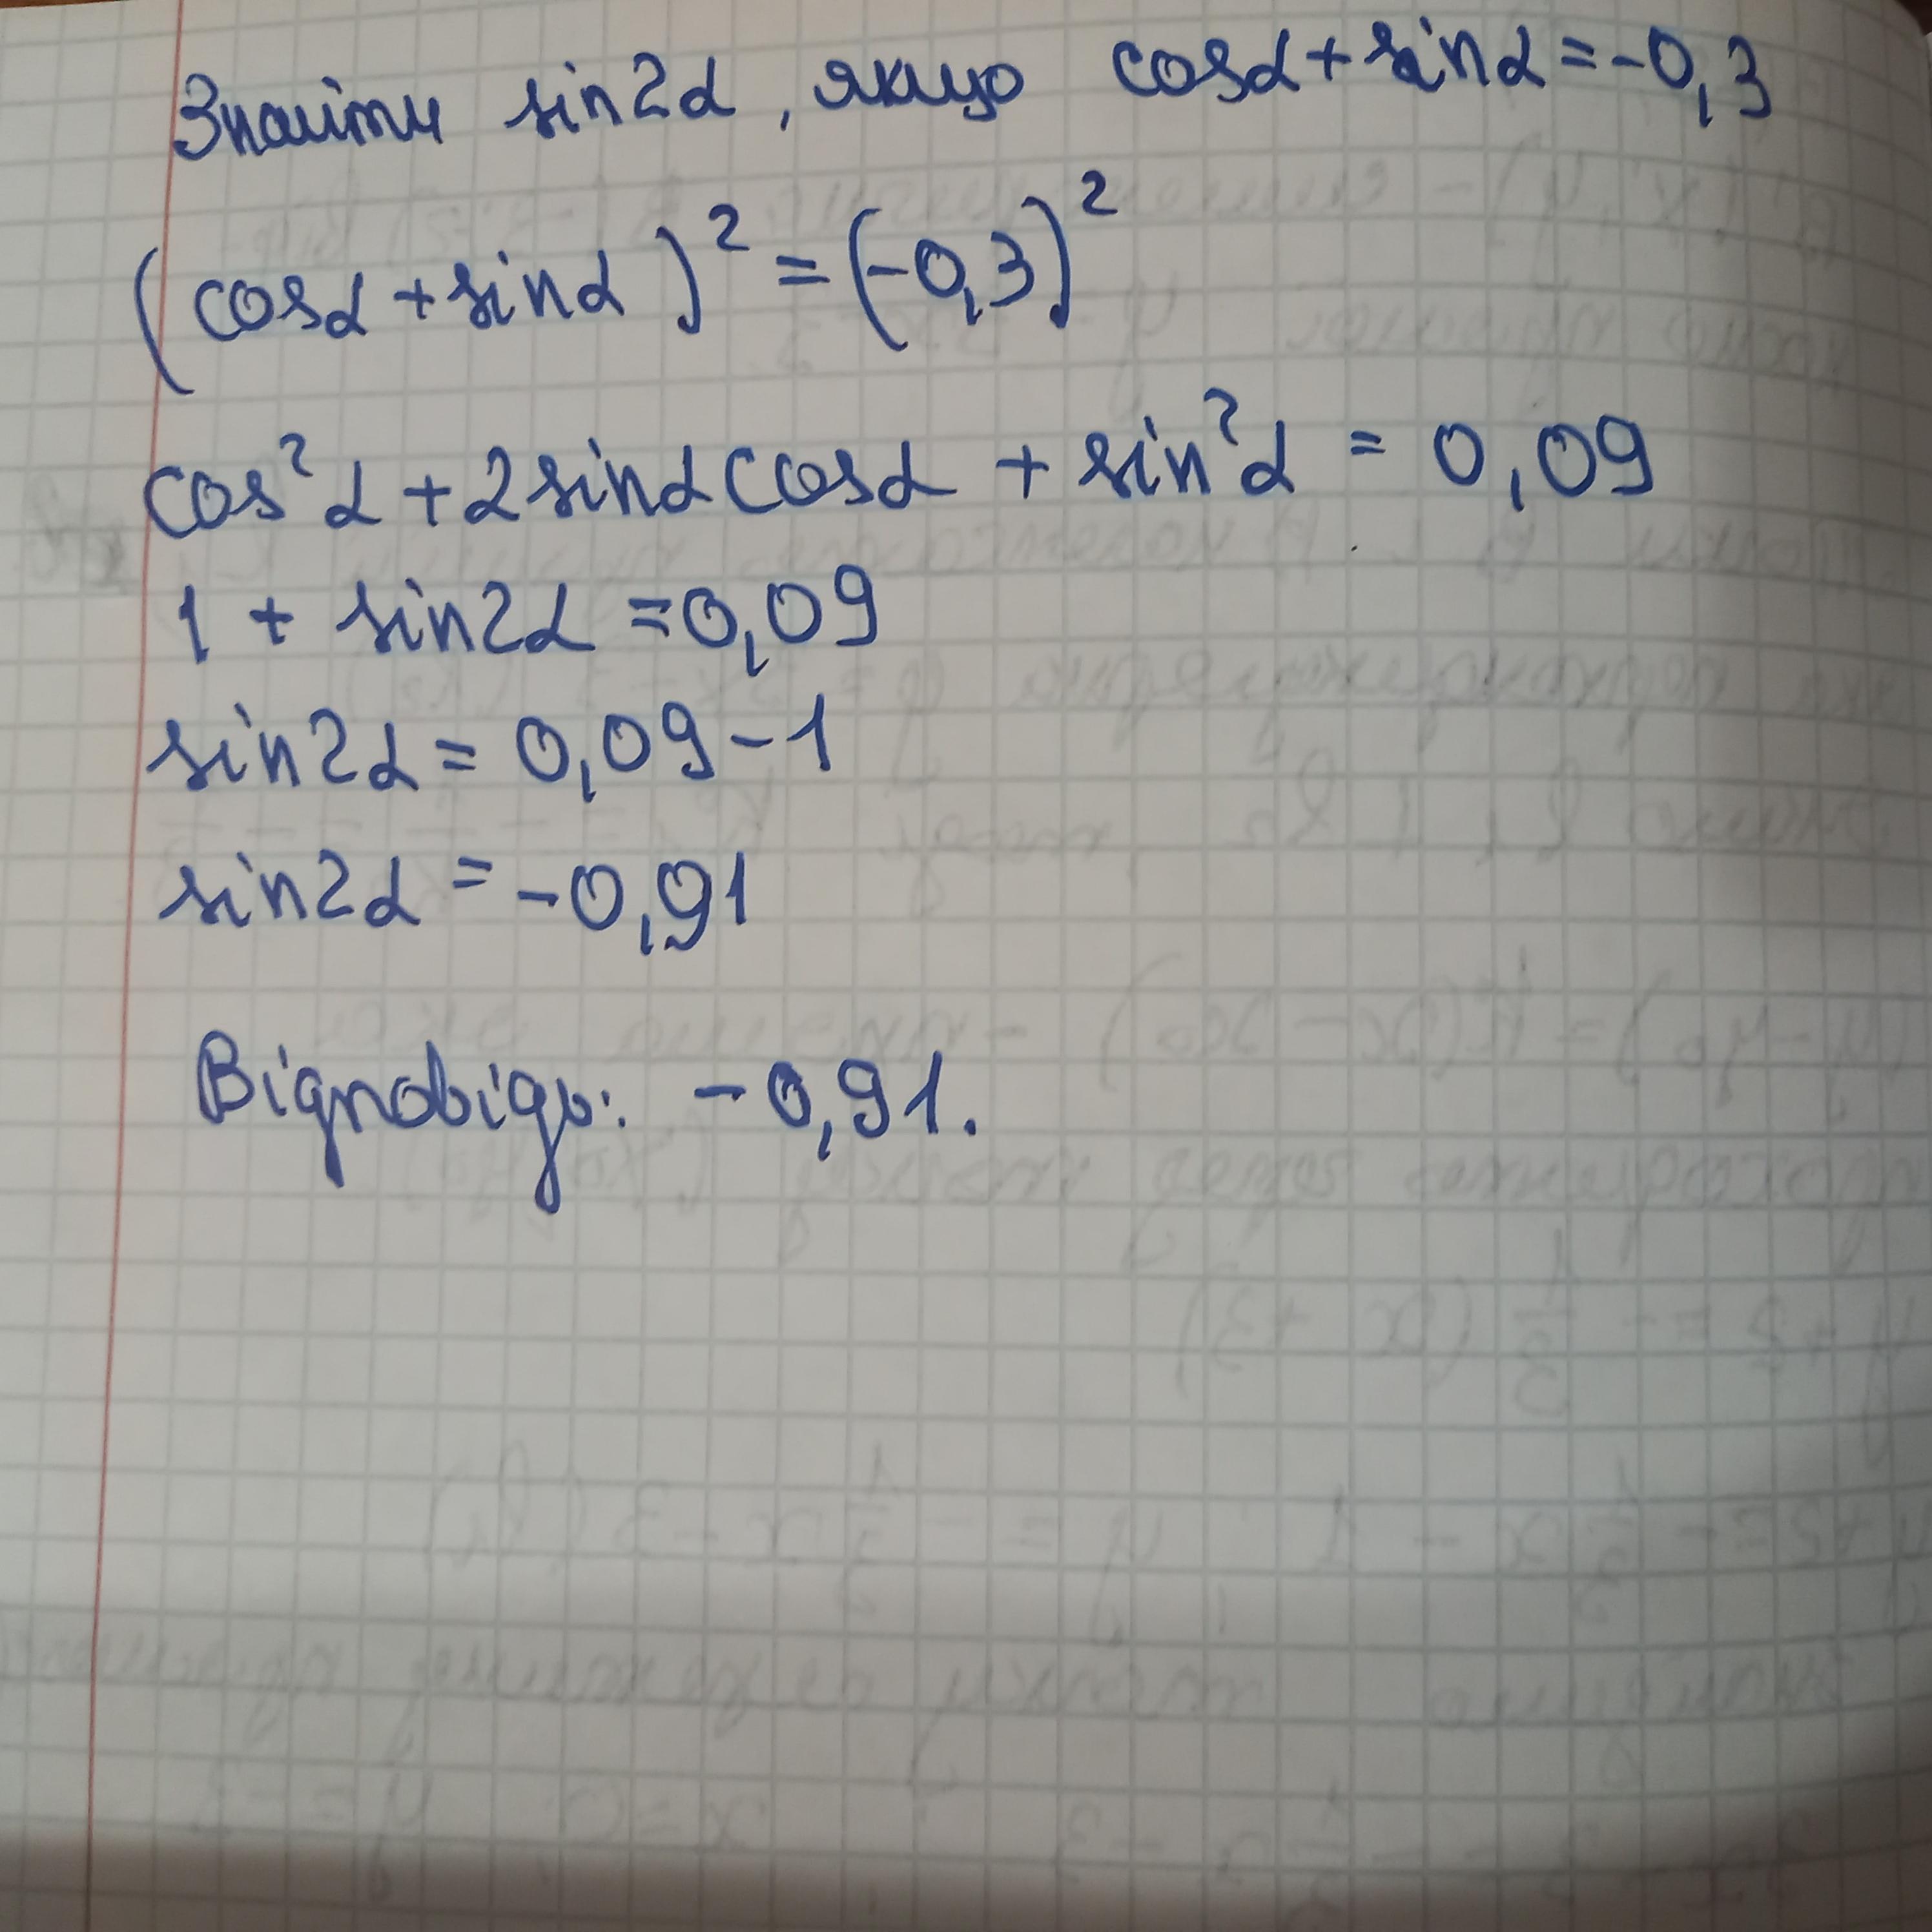 Знайти sin2α, якщо cosα+sinα=-0,3
(cosα+sinα)²=(-0,3)²
cos²α+2sinαcosα+sin²α=0,09
1+sin2α=0,09
sin2α=0,09-1
sin2α=-0,91
Відповідь: -0,91.